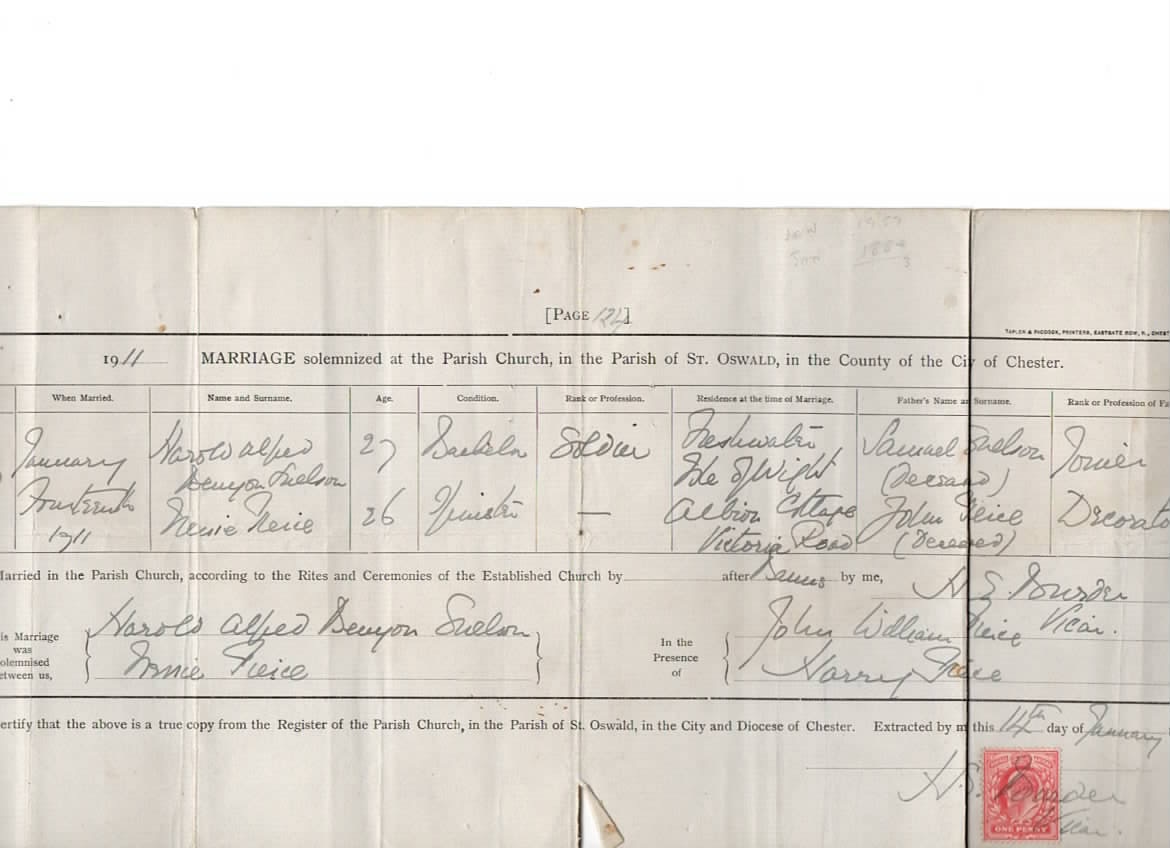 [PAGE 124]
TAPLEN & PADDOCK, PRINTERS, EASTGATE ROW, N., CHEST
1911 MARRIAGE solemnized at the Parish Church, in the Parish of ST. OSWALD, in the County of the City of Chester.
When Married. Name and Surname. Age. Condition. Rank or Profession. Residence at the time of Marriage. Father's Name and Surname. Rank or Profession of Fa
January Harold Alfred 27 Bachelor Soldier Freshwater Samuel Snelson Joiner
Benyon Snelson Isle of Wight (Deceased)
Fourteenth 26 Spinster — Albion Cottage John Decorato
1911 Victoria Road (Deceased)
Married in the Parish Church, according to the Rites and Ceremonies of the Established Church by after Banns by me,
Vicar.
is Marriage was olemnised etween us,
Harold Alfred Benyon Snelson
In the Presence of
John William
Harry
ertify that the above is a true copy from the Register of the Parish Church, in the Parish of St. Oswald, in the City and Diocese of Chester. Extracted by m this 14th day of January
Vicar.
ONE PENNY